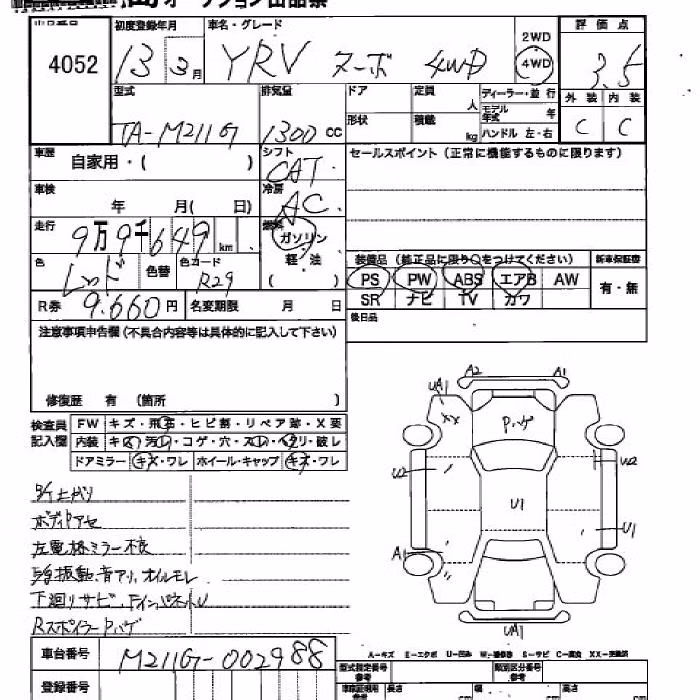 オークション出品票
4052
初度登録年月 13 3月
車名・グレード YRV ターボ 4WD
2WD
4WD
評価点 3.5
型式 TA-M211G
排気量 1300 cc
ドア
定員 人
ディーラー・並行
モデル年式 年
形状
積載 kg
ハンドル 左・右
外装 C
内装 C
車歴 自家用・( )
シフト CAT
セールスポイント（正常に機能するものに限ります）
車検 年 月( 日)
冷房 AC
走行 9万9千649 km
燃料 ガソリン
軽・油
( )
色 レッド
色替
色コード R29
装備品（純正品に限り○をつけてください）
新車保証書
PS PW ABS エアB AW
有・無
SR ナビ TV カワ
R券 9.660円
名変期限 月 日
後日品
注意事項申告欄（不具合内容等は具体的に記入して下さい）
修復歴 有 （箇所 ）
検査員記入欄
FW キズ・飛石・ヒビ割・リペア跡・X要
内装 キズ・汚レ・コゲ・穴・スレ・ヘタリ・破レ
ドアミラー キズ・ワレ ホイール・キャップ キズ・ワレ
ボディ色アセ
左電格ミラー不良
下廻りサビ、Fインパネメクレ
RスポイラーPハゲ
A2 A1
UA1
XX
Pハゲ
U2 U2
U1
U1
A1
UA1
A-キズ E-エクボ U-凹み W-補修跡 S-サビ C-腐食 XX-交換済
車台番号 M211G-002988
型式指定番号 参考
類別区分番号 参考
登録番号
車庫証明用 参考
長さ cm
幅 cm
高さ cm